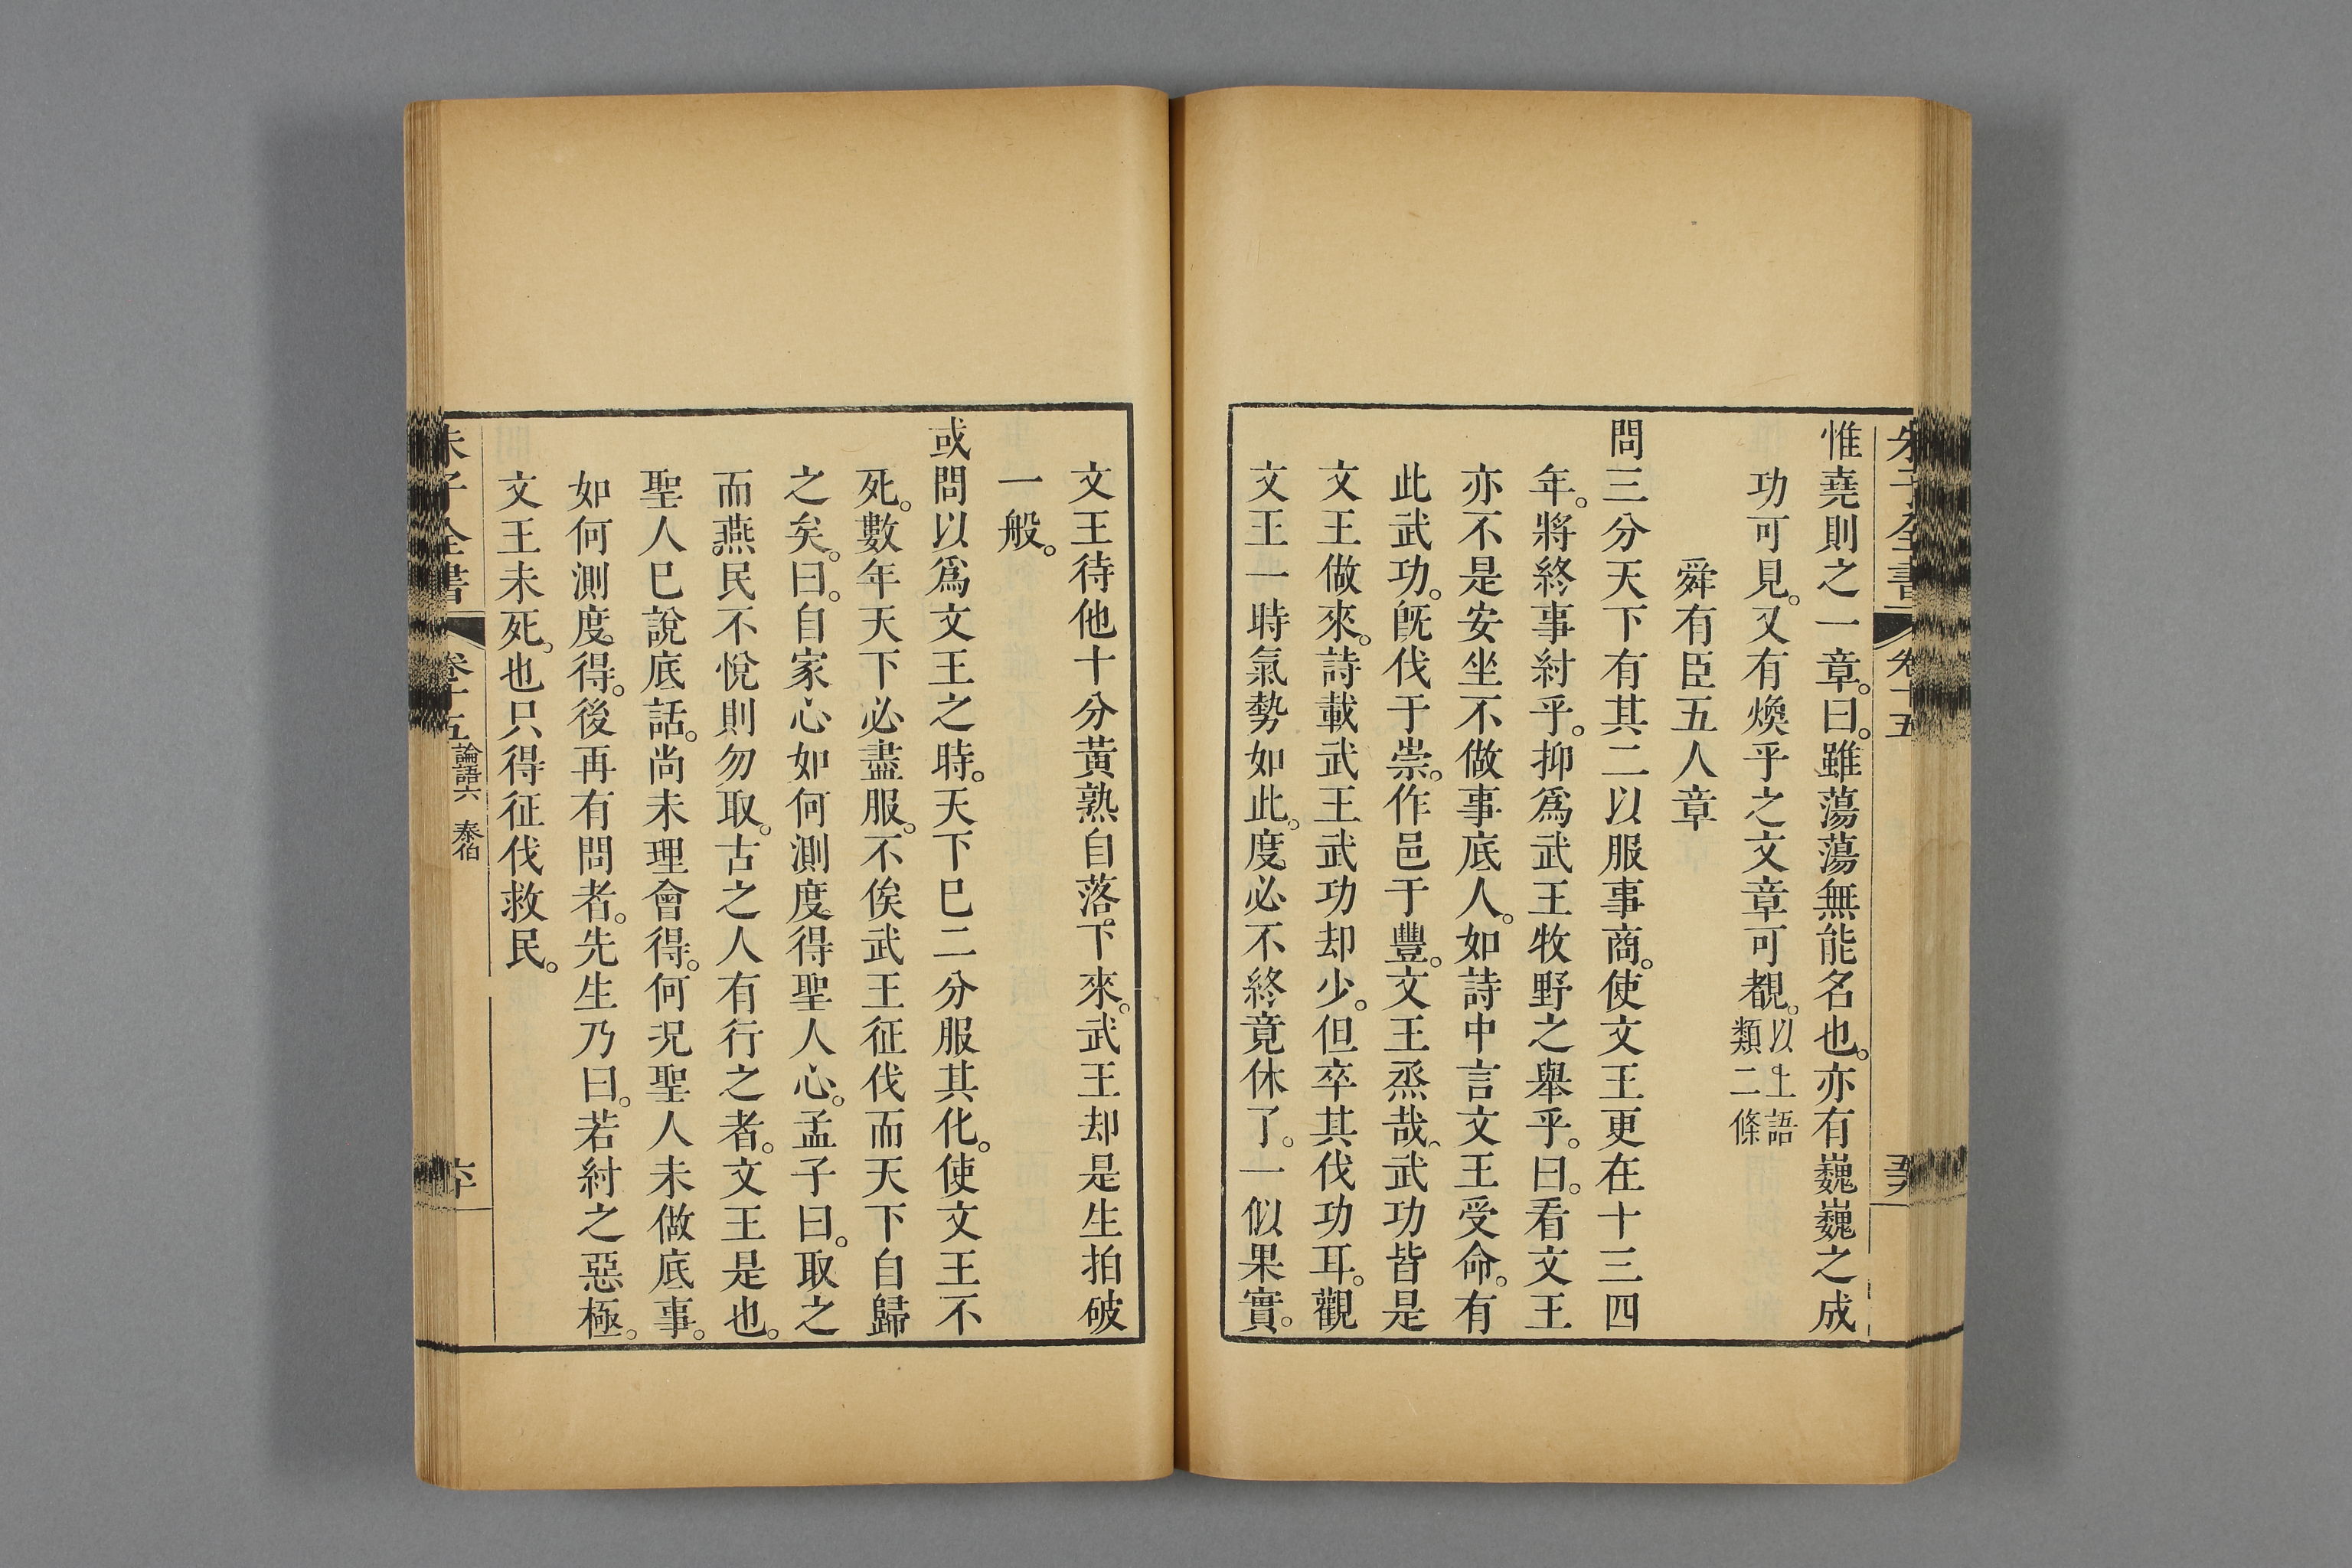 朱子全書 卷十五
惟堯則之一章。曰。雖蕩蕩無能名也。亦有巍巍之成
功可見。又有煥乎之文章可覩。以上語類二條
舜有臣五人章
問三分天下有其二以服事商。使文王更在十三四
年。將終事紂乎。抑爲武王牧野之舉乎。曰。看文王
亦不是安坐不做事底人。如詩中言文王受命。有
此武功。旣伐于崇。作邑于豐。文王烝哉、武功皆是
文王做來。詩載武王武功却少。但卒其伐功耳。觀
文王一時氣勢如此。度必不終竟休了。一似果實。
文王待他十分黃熟自落下來。武王却是生拍破
一般。
或問以爲文王之時。天下已二分服其化。使文王不
死。數年天下必盡服。不俟武王征伐而天下自歸
之矣。曰。自家心如何測度得聖人心。孟子曰。取之
而燕民不悅則勿取。古之人有行之者。文王是也。
聖人已說底話。尚未理會得。何况聖人未做底事。
如何測度得。後再有問者。先生乃曰。若紂之惡極。
文王未死。也只得征伐救民。
朱子全書 卷十五 論語六 泰伯